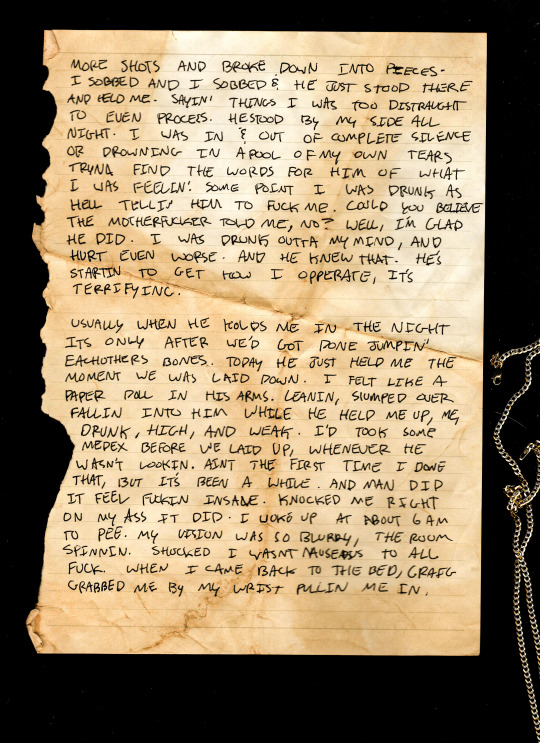 MORE SHOTS AND BROKE DOWN INTO PIECES.
I SOBBED AND I SOBBED & HE JUST STOOD THERE
AND HELD ME. SAYIN' THINGS I WAS TOO DISTRAUGHT
TO EVEN PROCESS. HE STOOD BY MY SIDE ALL
NIGHT. I WAS IN & OUT OF COMPLETE SILENCE
OR DROWNING IN A POOL OF MY OWN TEARS
TRYNA FIND THE WORDS FOR HIM OF WHAT
I WAS FEELIN'. SOME POINT I WAS DRUNK AS
HELL TELLIN' HIM TO FUCK ME. COULD YOU BELIEVE
THE MOTHERFUCKER TOLD ME, NO? WELL, I'M GLAD
HE DID. I WAS DRUNK OUTTA MY MIND, AND
HURT EVEN WORSE. AND HE KNEW THAT. HE'S
STARTIN TO GET HOW I OPPERATE, IT'S
TERRIFYING.
USUALLY WHEN HE HOLDS ME IN THE NIGHT
ITS ONLY AFTER WE'D GOT DONE JUMPIN'
EACHOTHERS BONES. TODAY HE JUST HELD ME THE
MOMENT WE WAS LAID DOWN. I FELT LIKE A
PAPER DOLL IN HIS ARMS. LEANIN, SLUMPED OVER
FALLIN INTO HIM WHILE HE HELD ME UP, ME,
DRUNK, HIGH, AND WEAK. I'D TOOK SOME
MEDEX BEFORE WE LAID UP, WHENEVER HE
WASN'T LOOKIN. AINT THE FIRST TIME I DONE
THAT, BUT IT'S BEEN A WHILE. AND MAN DID
IT FEEL FUCKIN INSANE. KNOCKED ME RIGHT
ON MY ASS IT DID. I WOKE UP AT ABOUT 6 AM
TO PEE. MY VISION WAS SO BLURRY, THE ROOM
SPINNIN. SHOCKED I WASNT NAUSEOUS TO ALL
FUCK. WHEN I CAME BACK TO THE BED, CRAIG
GRABBED ME BY MY WRIST PULLIN ME IN.